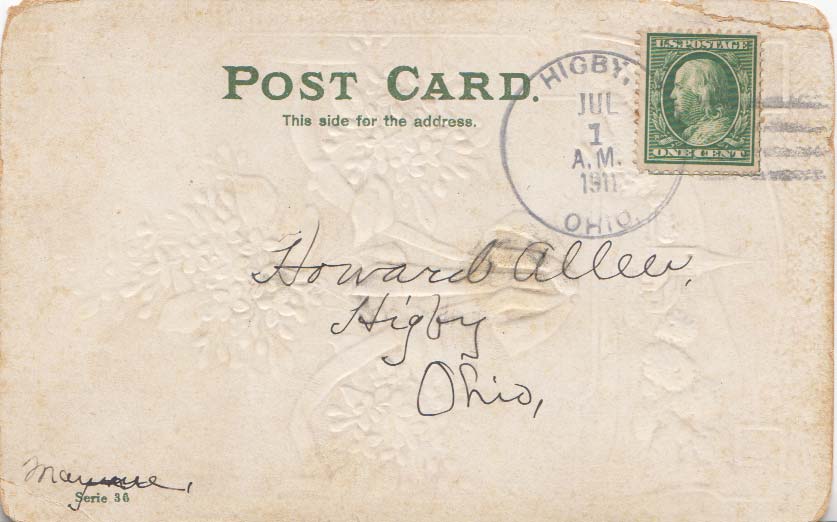 POST CARD.
This side for the address.
HIGBY,
JUL
1
A.M.
1911
OHIO.
U.S. POSTAGE
ONE CENT
Howard Allen,
Higby
Ohio,
Serie 36